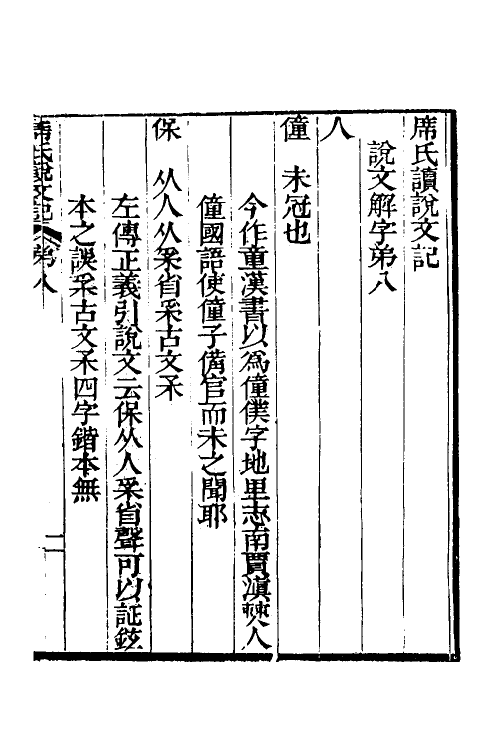 席氏讀說文記
說文解字弟八
人
僮　未冠也
今作童漢書以爲僮僕字地里志南賈滇僰人
僮國語使僮子備官而未之聞耶
保　从人从𤓽省𤓽古文𤓽
左傳正義引說文云保从人𤓽省聲可以証鉉
本之誤𤓽古文𤓽四字鍇本無
席氏說文記　弟八　二